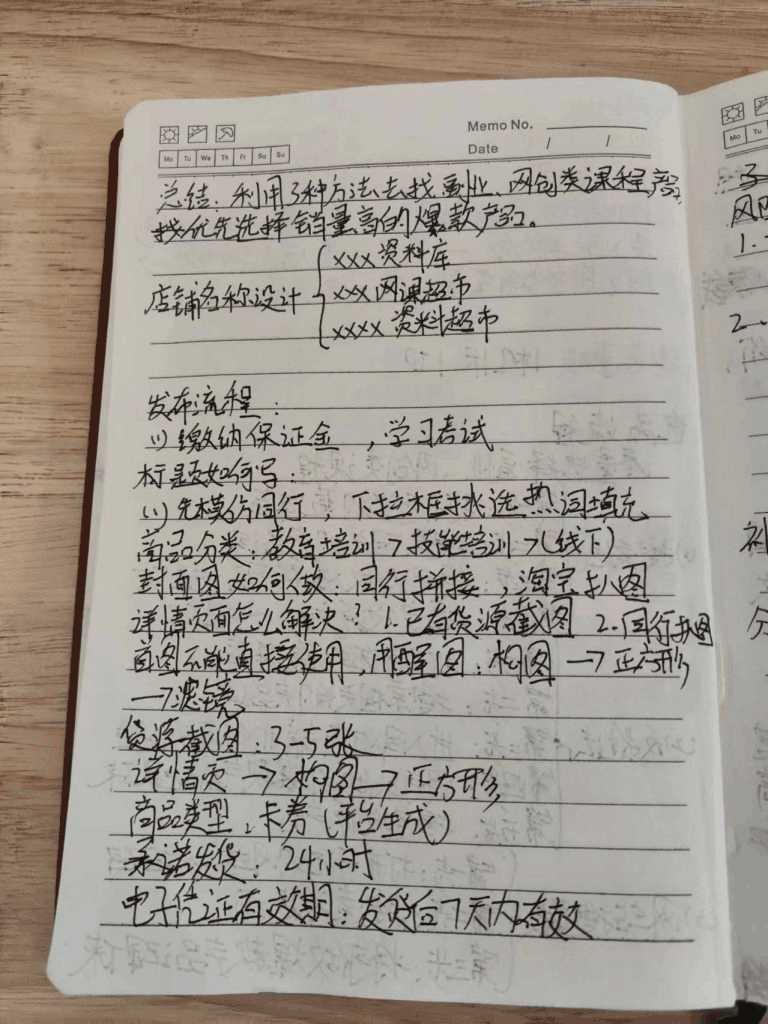 Memo No.
Mo Tu We Th Fr Sa Su
Date / /
总结: 利用3种方法去找副业、网创类课程,产品,
找优先选择销量高的爆款产品。
店铺名称设计
xxx资料库
xxx网课超市
xxxx 资料超市
发布流程:
(1)缴纳保证金 ,学习考试
标题如何写:
(1)先模仿同行,下拉框挑选热词填充
商品分类: 教育培训>技能培训>(线下)
封面图如何做: 同行拼接,淘宝扒图
详情页面怎么解决? 1.已有货源截图 2.同行扒图
首图不能直接使用,用醒图: 构图→正方形
→滤镜
货源截图: 3-5张
详情页→构图→正方形
商品类型: 卡券(平台生成)
承诺发货: 24小时
电子凭证有效期: 发货后7天内有效
Mo Tu
1.
2.
补
分